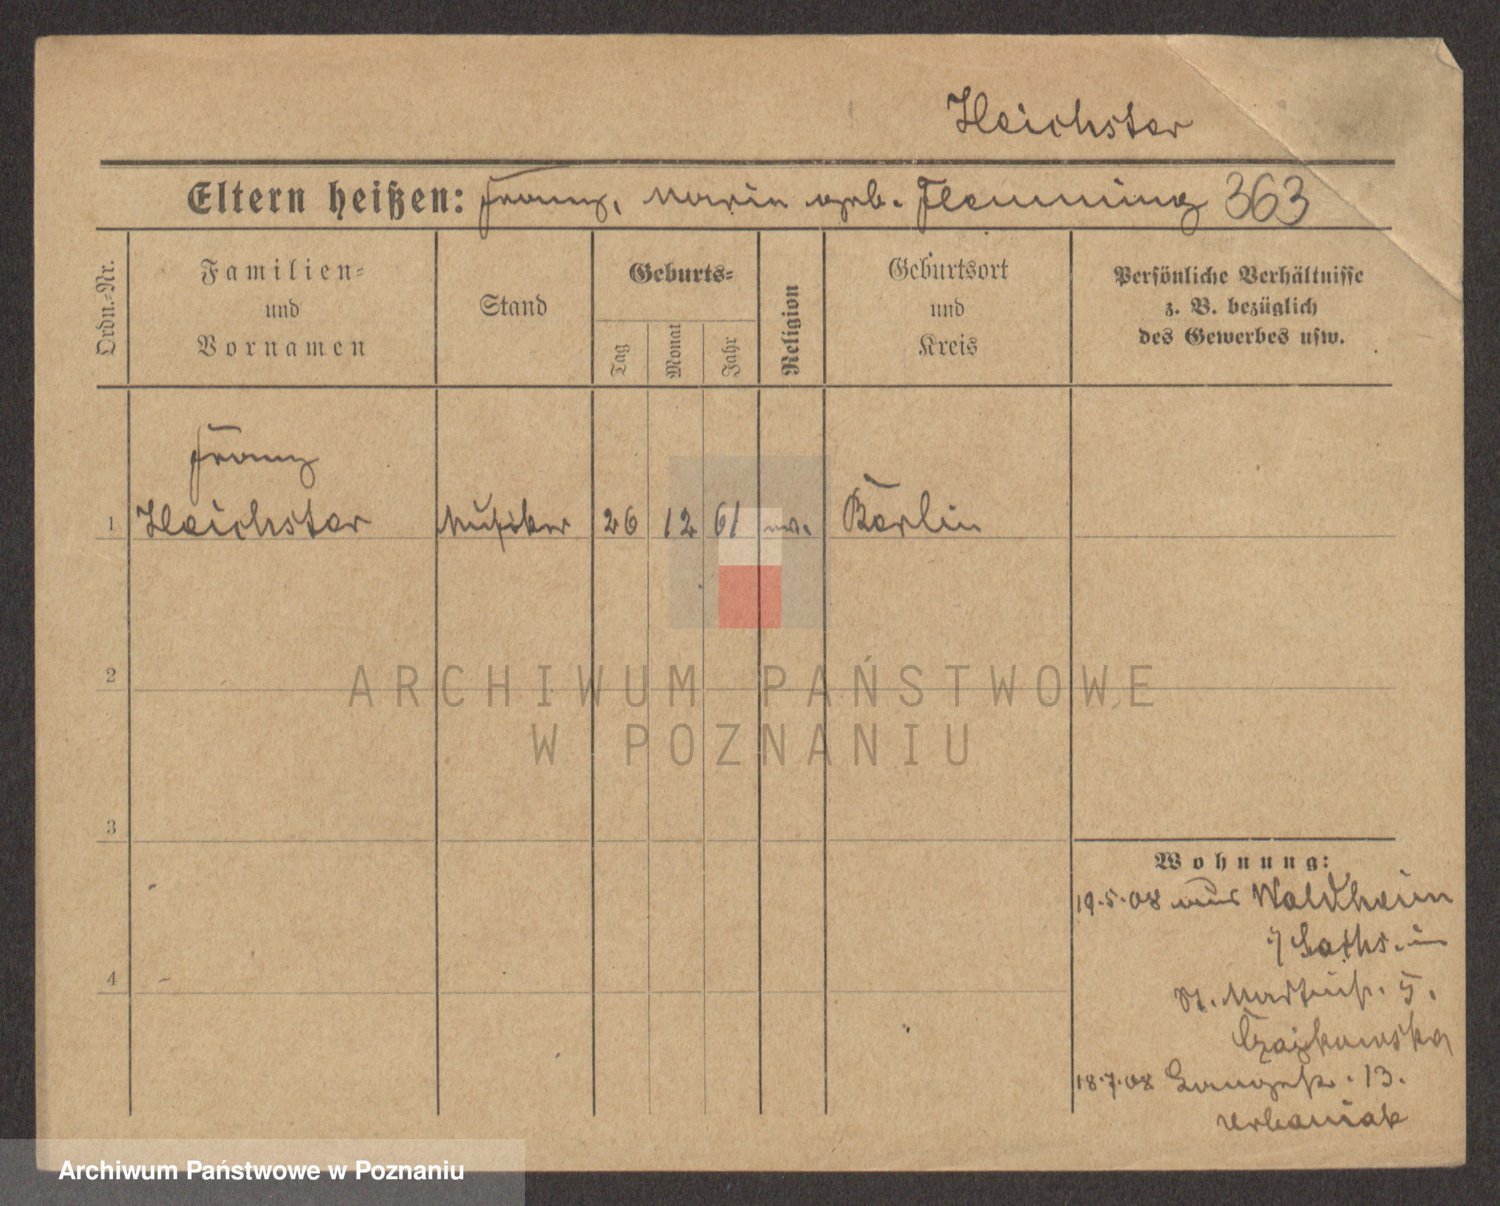 Heichster
Eltern heißen: Franz, Marie geb. Flemming 363
Ordn.-Nr.
Familien-
und
Vornamen
Stand
Geburts-
Tag
Monat
Jahr
Religion
Geburtsort
und
Kreis
Persönliche Verhältnisse
z. B. bezüglich
des Gewerbes usw.
Franz
1 Heichster Musiker 26 12 61 ev. Berlin
2
3
4
Wohnung:
19.5.08 aus Waldheim
i/ Sachs. in
St. Martinstr. 5.
Czajkowska
18.7.08 Langestr. 13.
Urbaniak
ARCHIWUM PAŃSTWOWE
W POZNANIU
Archiwum Państwowe w Poznaniu